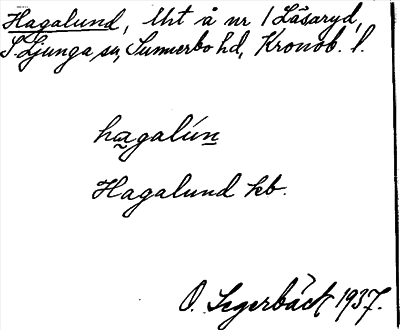 Hagalund, lht å nr 1 Låsaryd,
S. Ljunga sn, Sunnerbo hd, Kronob. l.
hagalún
Hagalund hb.
O. Segerbäck 1937.